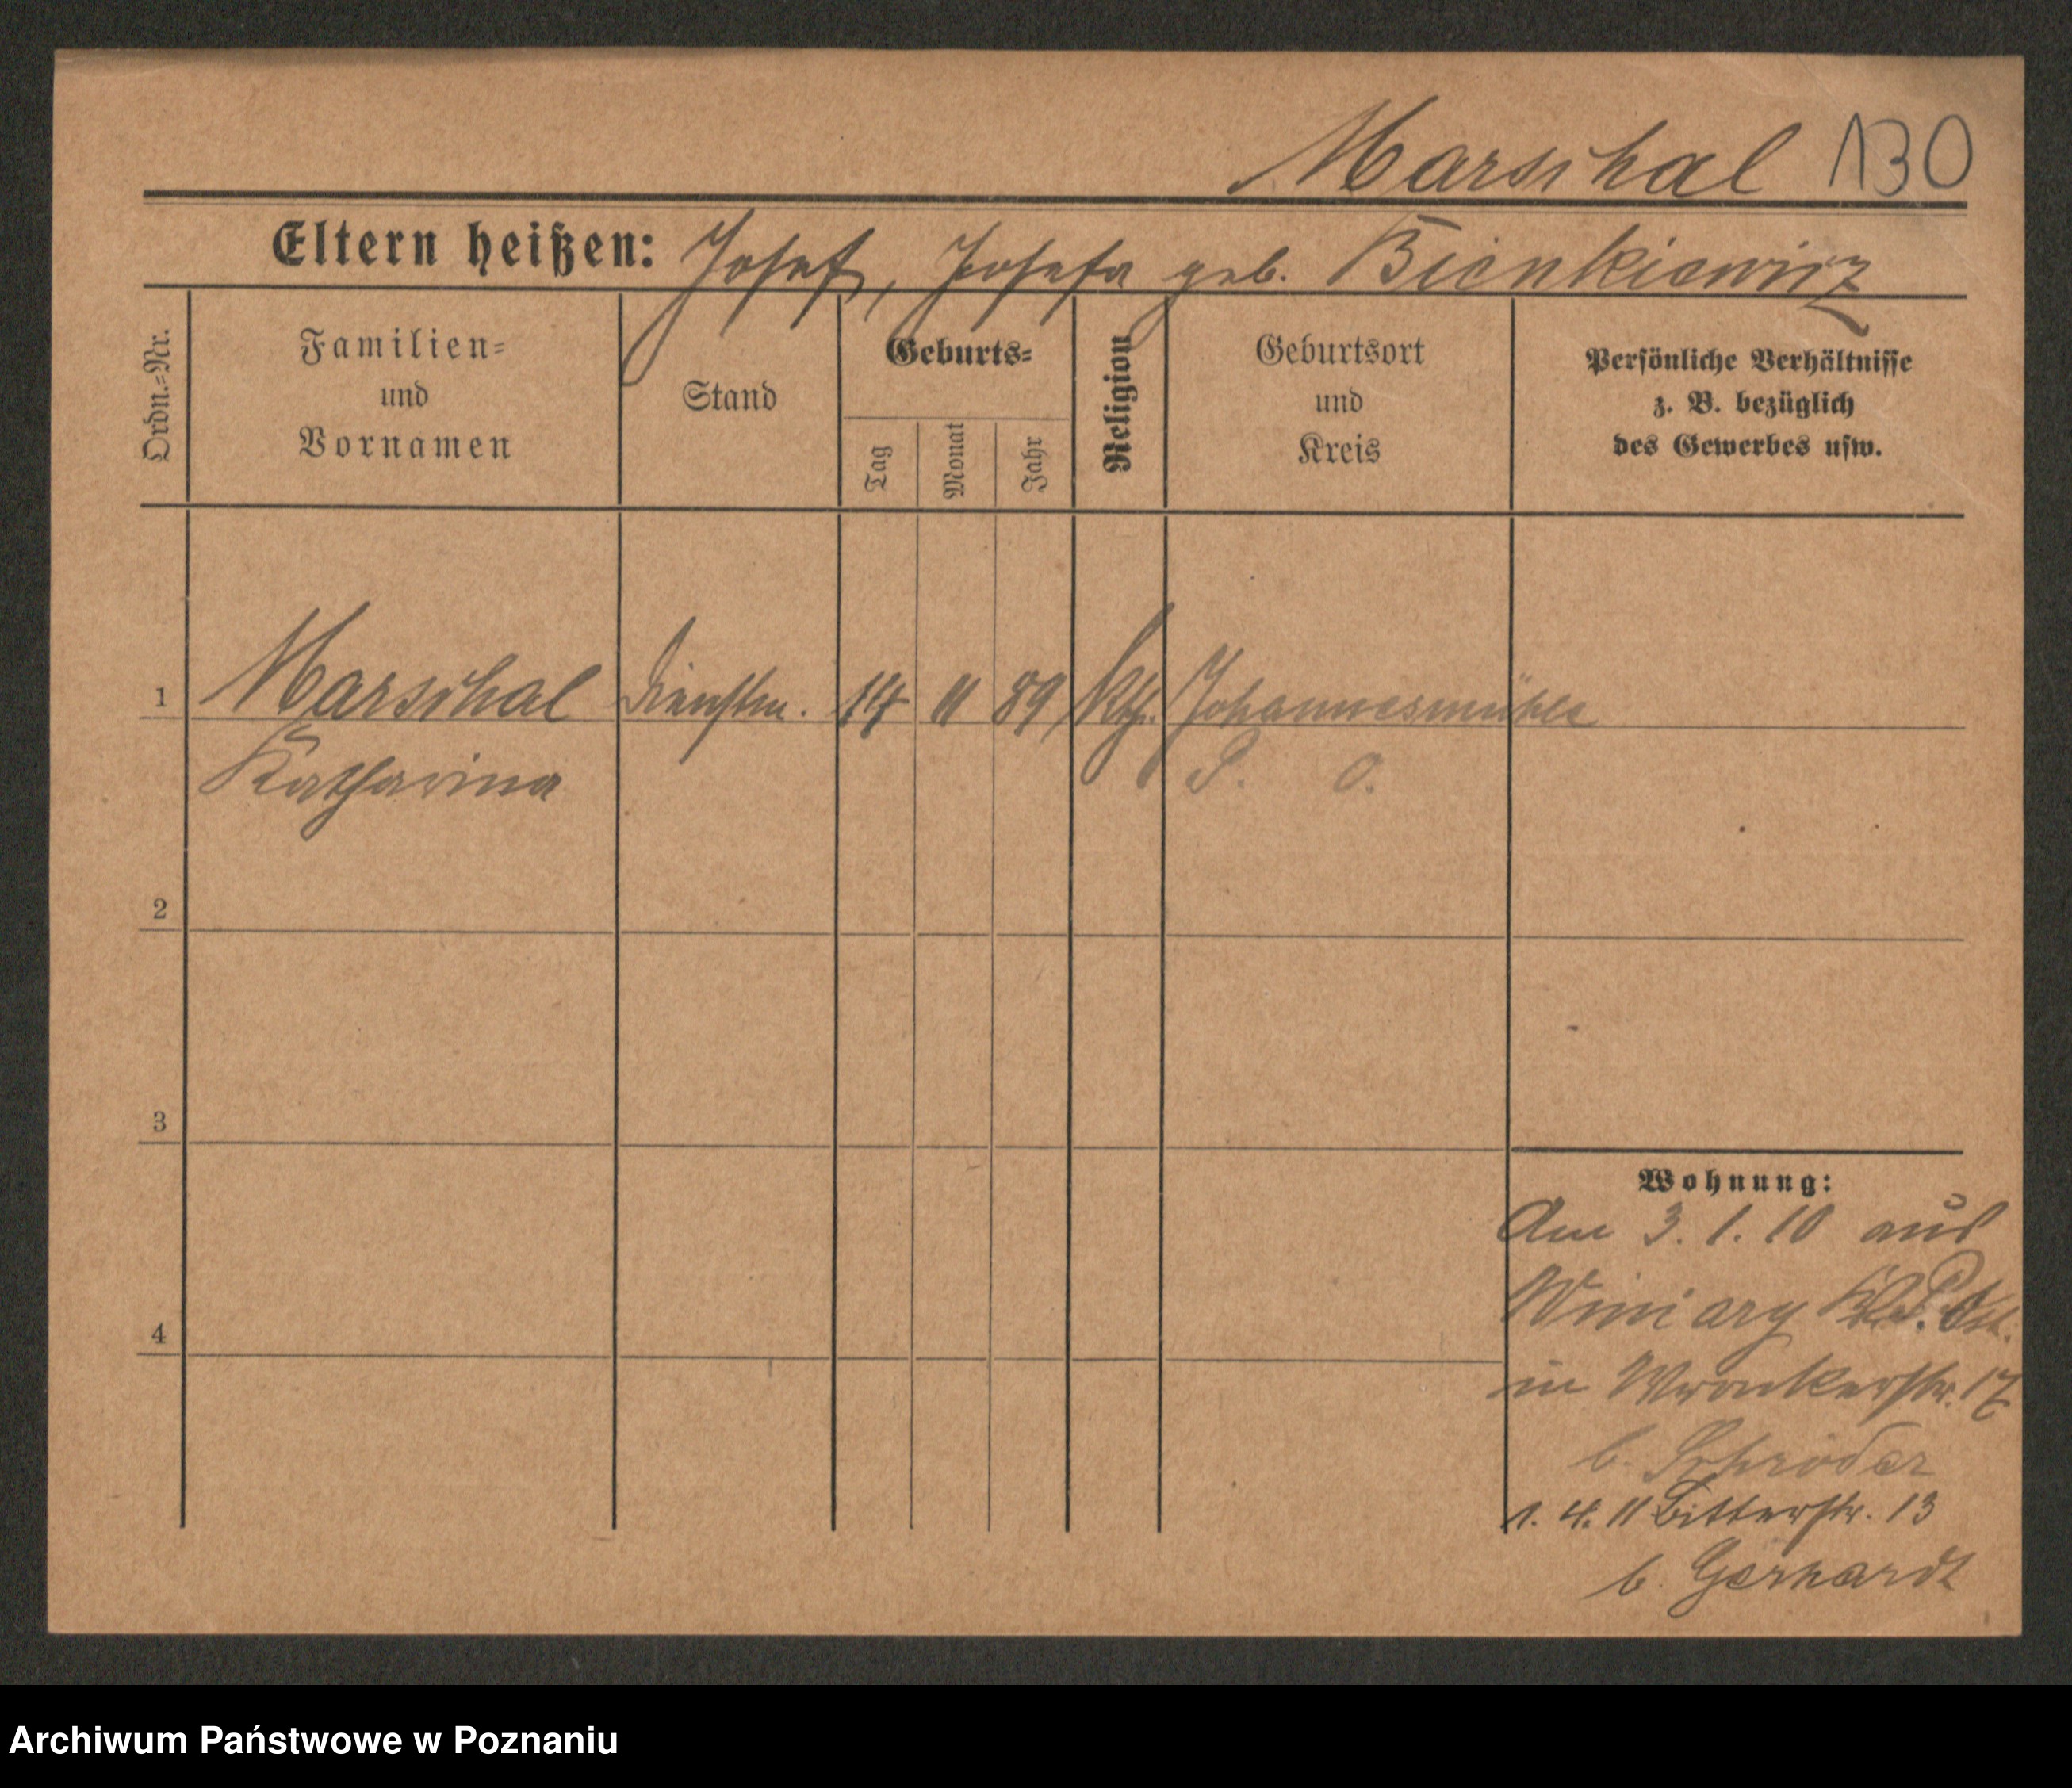 Marschal 130
Eltern heißen: Josef, Josefa geb. Bienkiewicz
Ordn.-Nr.
Familien-
und
Vornamen
Stand
Geburts-
Tag
Monat
Jahr
Religion
Geburtsort
und
Kreis
Persönliche Verhältnisse
z. B. bezüglich
des Gewerbes usw.
1 Marschal Dienstm. 14 11 89 kth. Johannesmühle
Katharina P. O.
2
3
4
Wohnung:
Am 3. 1. 10 aus
Winiary P. Ost.
in Wronkerstr. 17
b. Schröder
1. 4. 11 Bitterstr. 13
b. Gerhardt
Archiwum Państwowe w Poznaniu